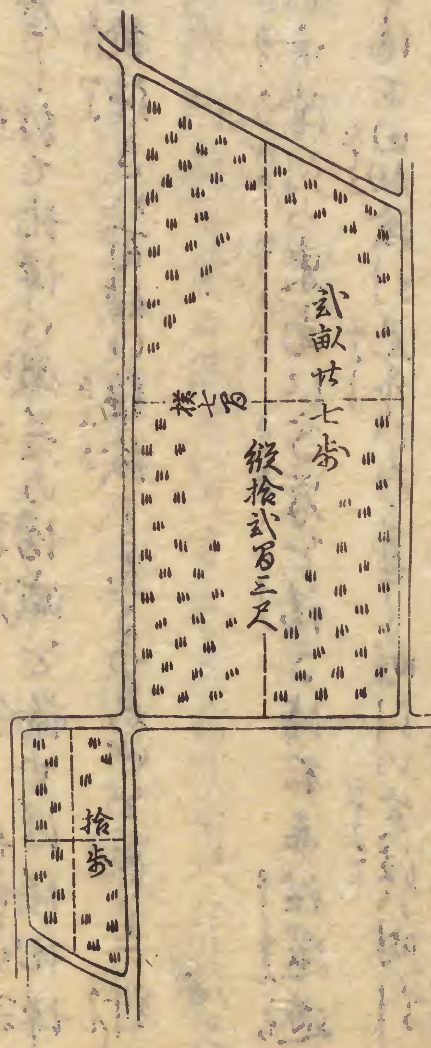 弐畝廿七歩
横七間
縦拾弐間三尺
拾歩